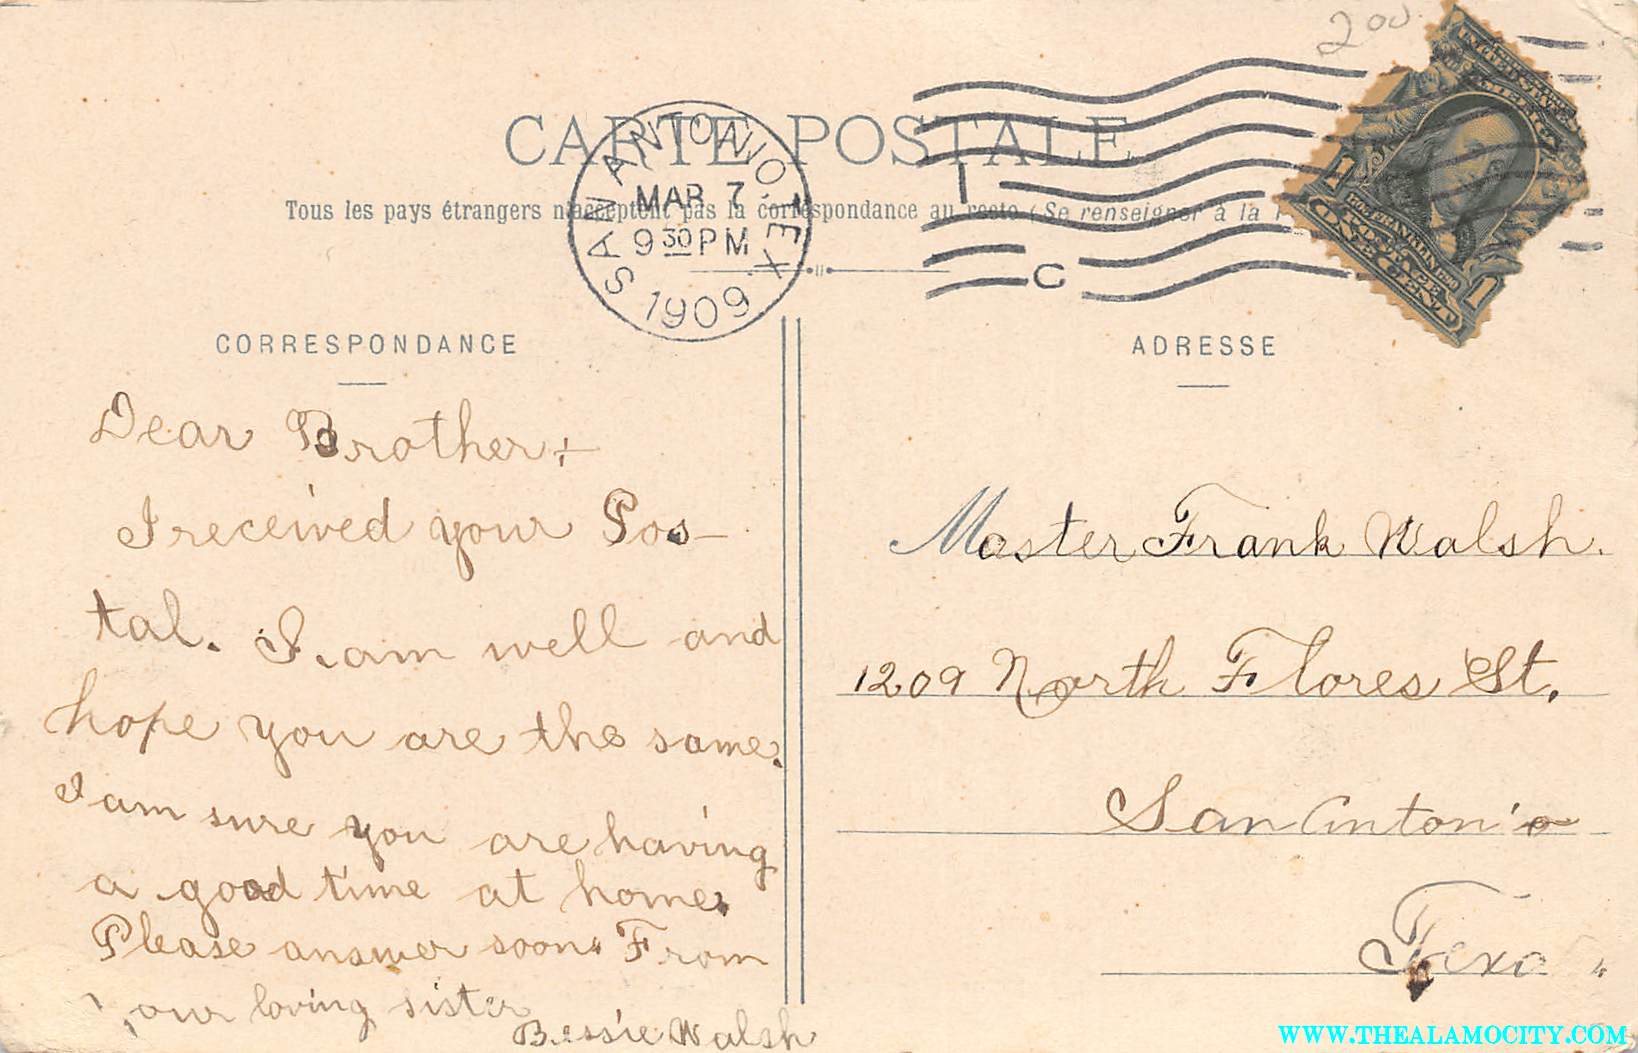 200
CARTE POSTALE
SAN ANTONIO, TEX
MAR 7
9 30 PM
1909
1 C
Tous les pays étrangers n'acceptent pas la correspondance au recto (Se renseigner à la
UNITED STATES OF AMERICA
1 1
ONE CENT
CORRESPONDANCE
Dear Brother +
I received your Pos-
tal. I am well and
hope you are the same.
I am sure you are having
a good time at home.
Please answer soon. From
your loving sister
Bessie Walsh
ADRESSE
Master Frank Walsh.
1209 North Flores St.
San Antonio
Texa
WWW.THEALAMOCITY.COM